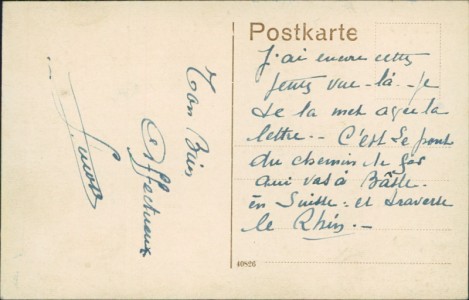 Postkarte
J'ai encore cette
petite vue-là - je
te la met avec la
lettre.. C'est le pont
du chemin de fer
qui vas à Bâsle.
en Suisse - et traverse
le Rhin. -
Ton Bien
Affectueux
40826